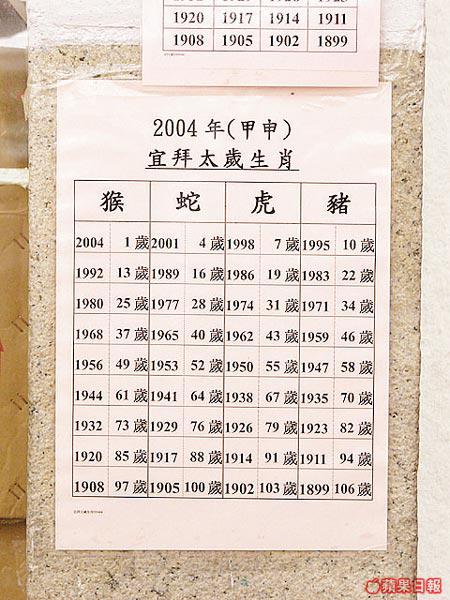 1920 1917 1914 1911
1908 1905 1902 1899
2004年(甲申)
宜拜太歲生肖
猴 蛇 虎 豬
2004 1歲 2001 4歲 1998 7歲 1995 10歲
1992 13歲 1989 16歲 1986 19歲 1983 22歲
1980 25歲 1977 28歲 1974 31歲 1971 34歲
1968 37歲 1965 40歲 1962 43歲 1959 46歲
1956 49歲 1953 52歲 1950 55歲 1947 58歲
1944 61歲 1941 64歲 1938 67歲 1935 70歲
1932 73歲 1929 76歲 1926 79歲 1923 82歲
1920 85歲 1917 88歲 1914 91歲 1911 94歲
1908 97歲 1905 100歲 1902 103歲 1899 106歲
蘋果日報